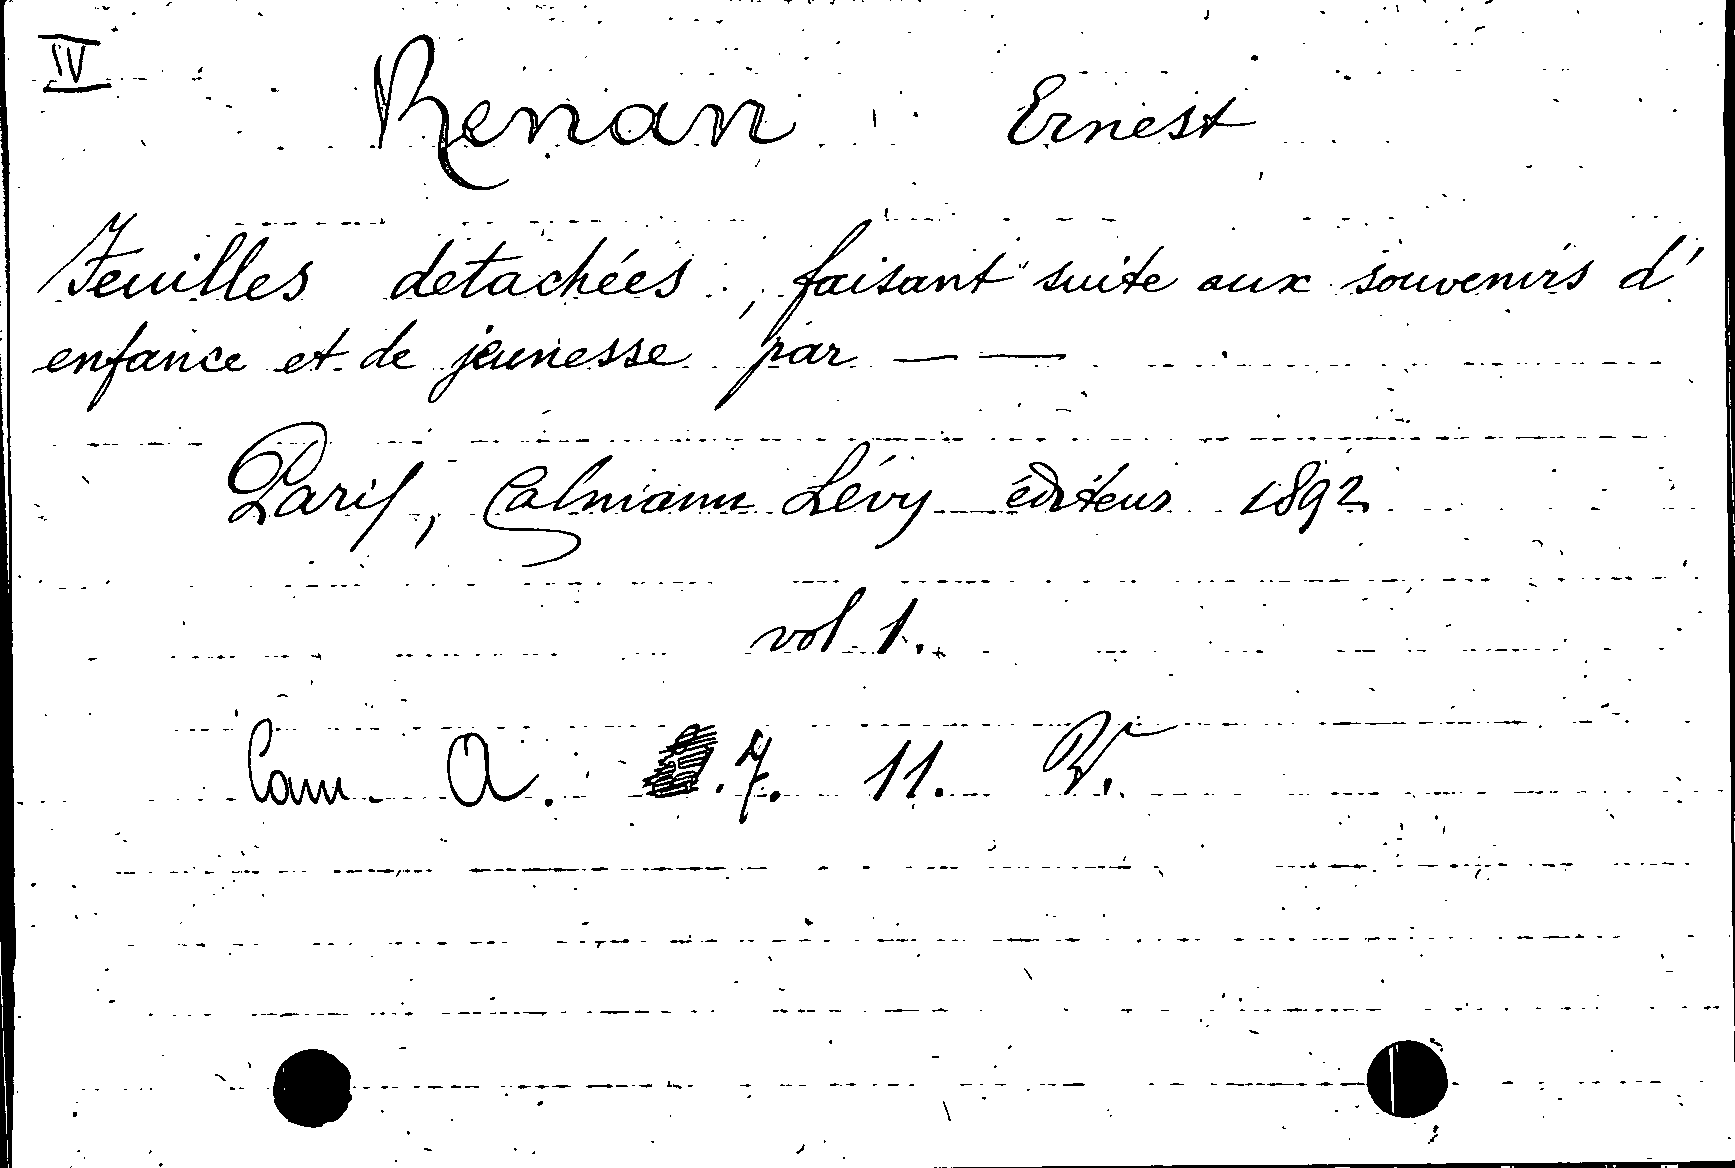 IV
Renan Ernest
Feuilles detachées, faisant suite aux souvenirs d'
enfance et de jeunesse par — —
Paris, Calmann Lévy éditeur 1892
vol 1.
Cam. A. 7. 11.